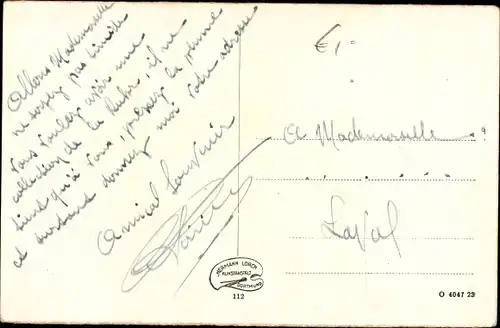 Allons Mademoiselle
ne soyez pas timide
vous voulez avoir une
collection de la Ruhr, il ne
tient qu'à vous, prenez la plume
et surtout donnez moi votre adresse
Amical Souvenir
A Mademoiselle
Laval
HERMANN LORCH
KUNSTANSTALT
DORTMUND
112
O 4047 23